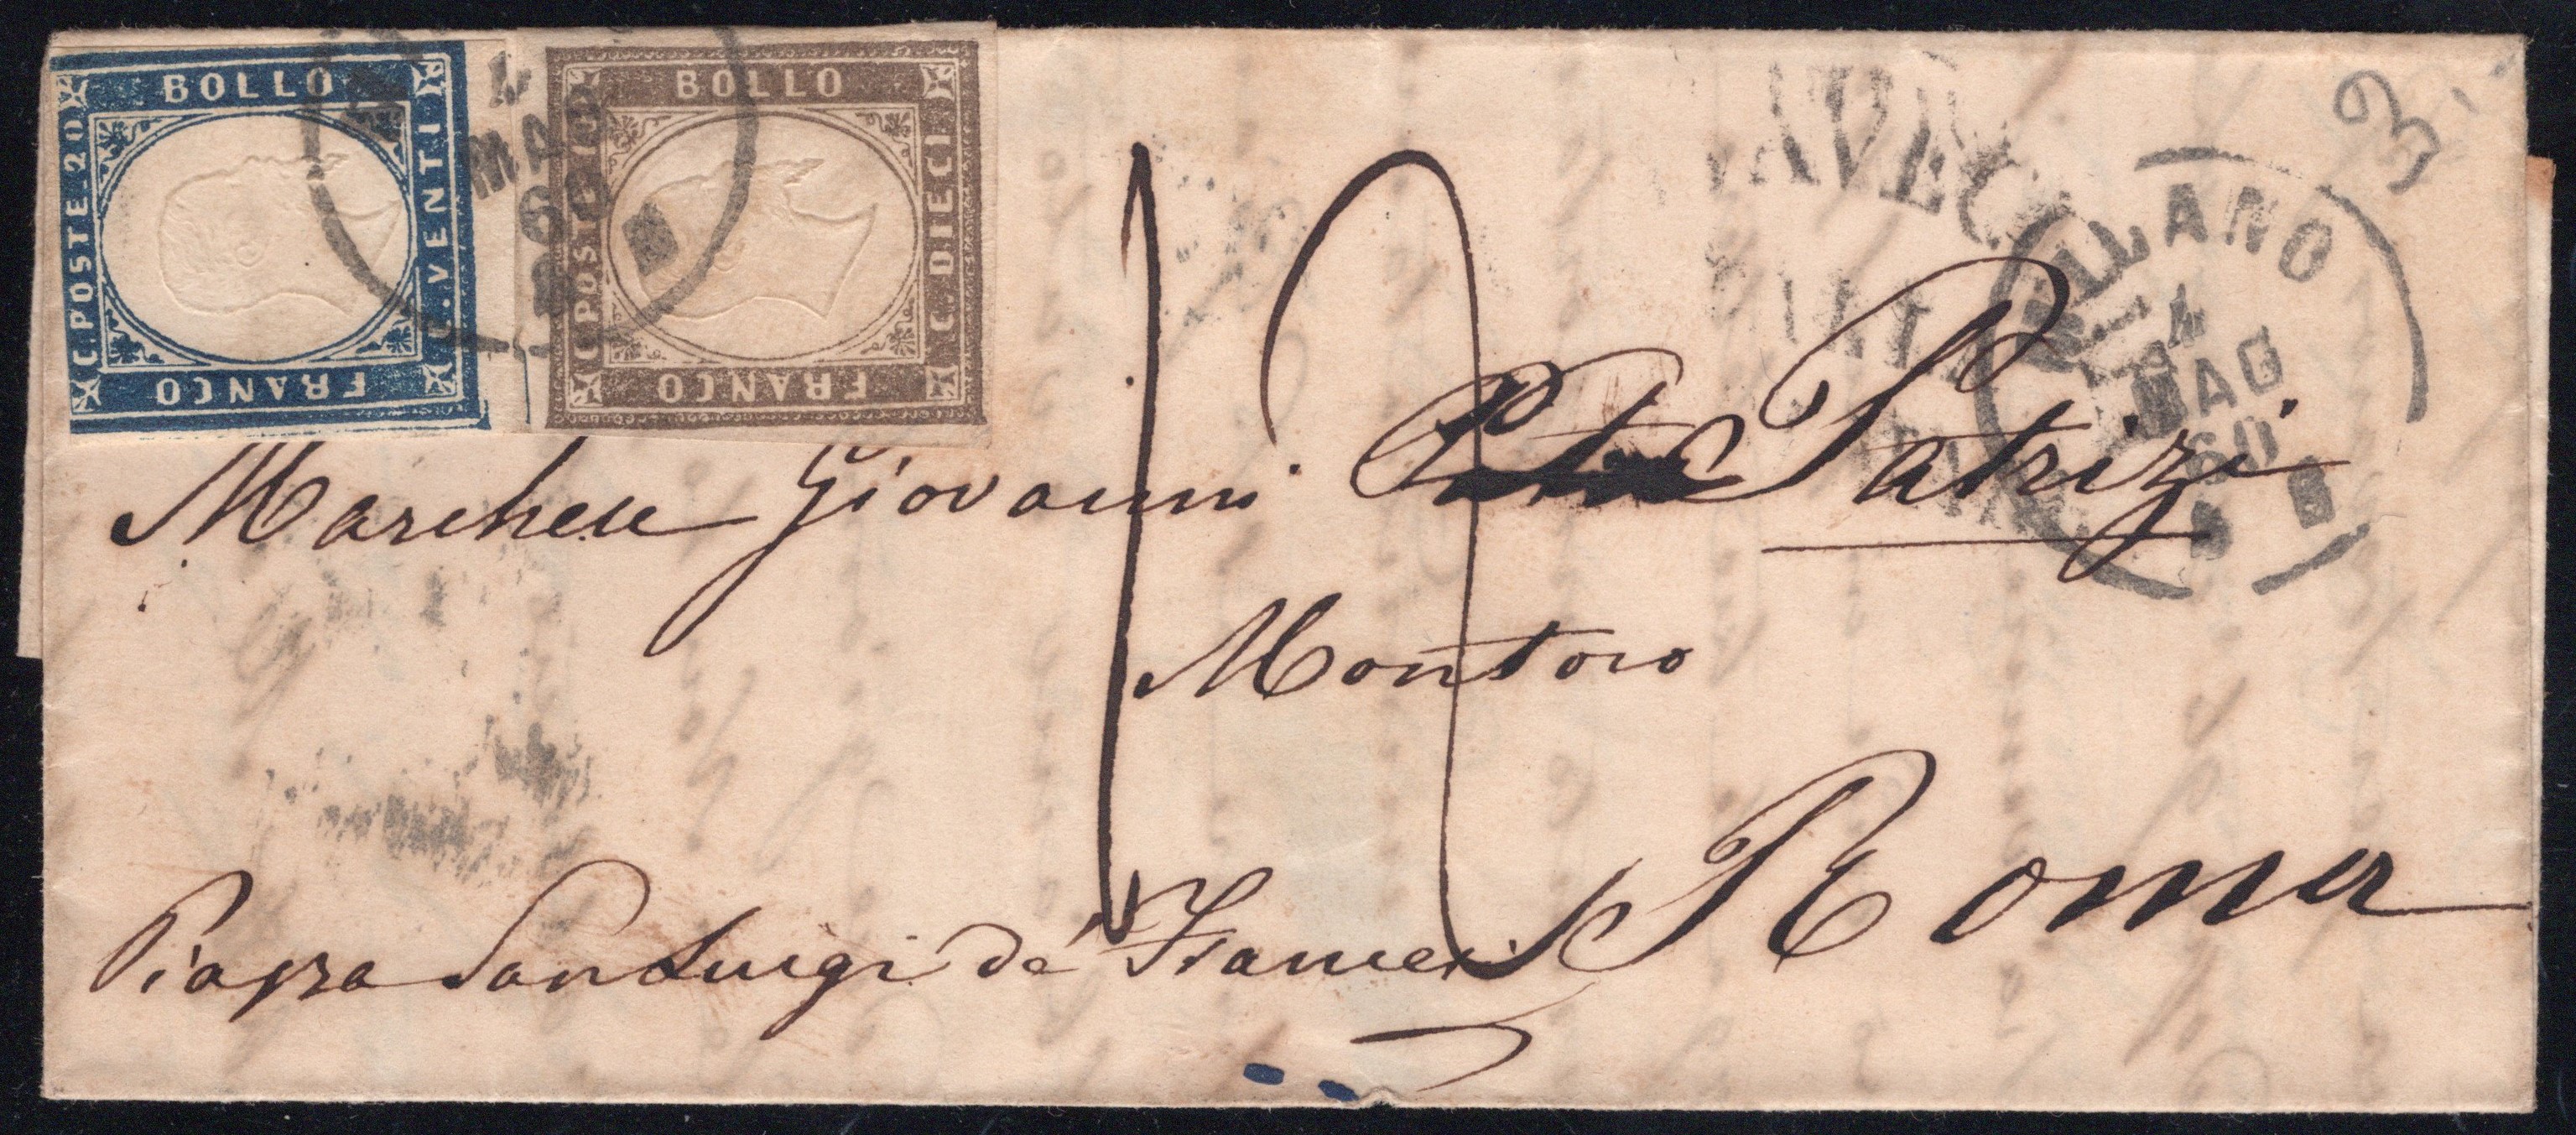 BOLLO
C. POSTE 20
C. VENTI
FRANCO
BOLLO
C. POSTE 10
C. DIECI
FRANCO
4
MAG
60
3
MILANO
4
MAG
60
Marchese Giovanni Patrizi
Montoro
Roma
Piazza San Luigi de' Francesi